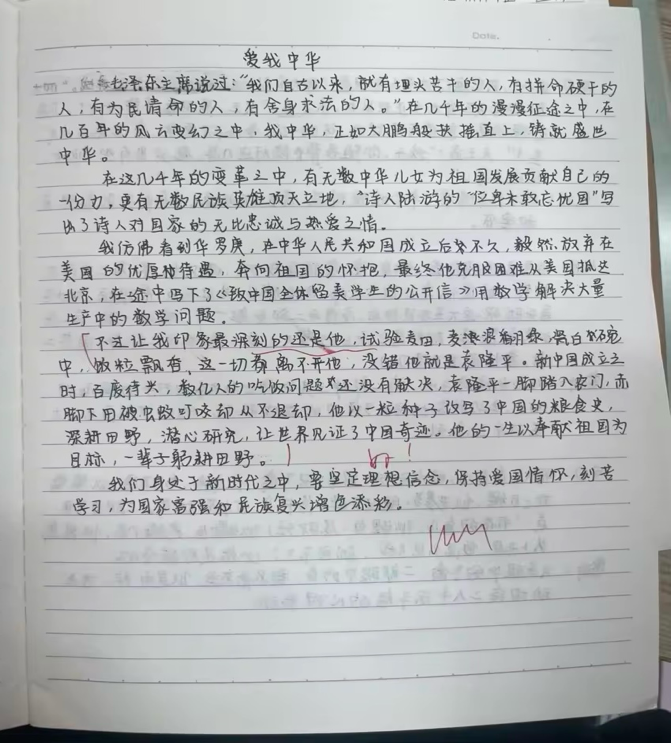 Date.
爱我中华
毛泽东主席说过:“我们自古以来,就有埋头苦干的人,有拼命硬干的
人,有为民请命的人,有舍身求法的人。”在几千年的漫漫征途之中,在
几百年的风云变幻之中,我中华,正如大鹏般扶摇直上,铸就盛世
中华。
在这几千年的变革之中,有无数中华儿女为祖国发展贡献自己的
一份力,更有无数民族英雄顶天立地,诗人陆游的“位卑未敢忘忧国”写
出了诗人对国家的无比忠诚与热爱之情。
我仿佛看到华罗庚,在中华人民共和国成立后不久,毅然放弃在
美国的优厚待遇,奔向祖国的怀抱,最终他克服困难从美国抵达
北京,在途中写下了《致中国全体留美学生的公开信》用数学解决大量
生产中的数学问题。
不过让我印象最深刻的还是他,试验麦田,麦浪翻绿,瓷白碗
中,饭粒飘香,这一切都离不开他,没错他就是袁隆平。新中国成立之
时,百废待兴,数亿人的吃饭问题还没有解决,袁隆平一脚踏入农门,赤
脚下田被虫蚁叮咬却从不退却,他以一粒种子改写了中国的粮食史,
深耕田野,潜心研究,让世界见证了中国奇迹。他的一生以奉献祖国为
目标,一辈子躬耕田野。
我们身处于新时代之中,要坚定理想信念,保持爱国情怀,刻苦
学习,为国家富强和民族复兴增色添彩。